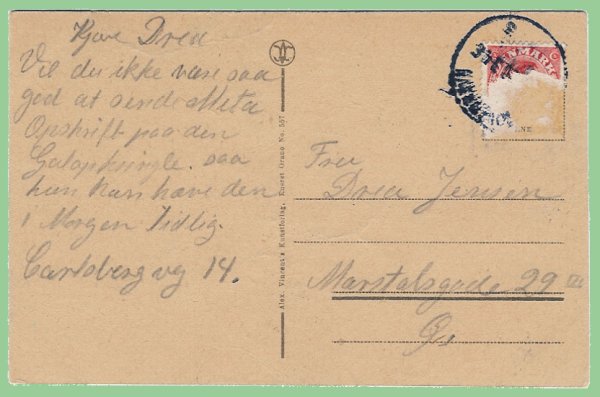 Kjære Drea
Vil du ikke være saa
god at sende Meta
Opskrift paa den
saa
hun kan have den
i Morgen tidlig.
Carlsberg vej 14.
Alex. Vincent's Kunstforlag, Eneret Grano No. 567
DANMARK
Fru
Drea Jensen
Marstalsgade 29